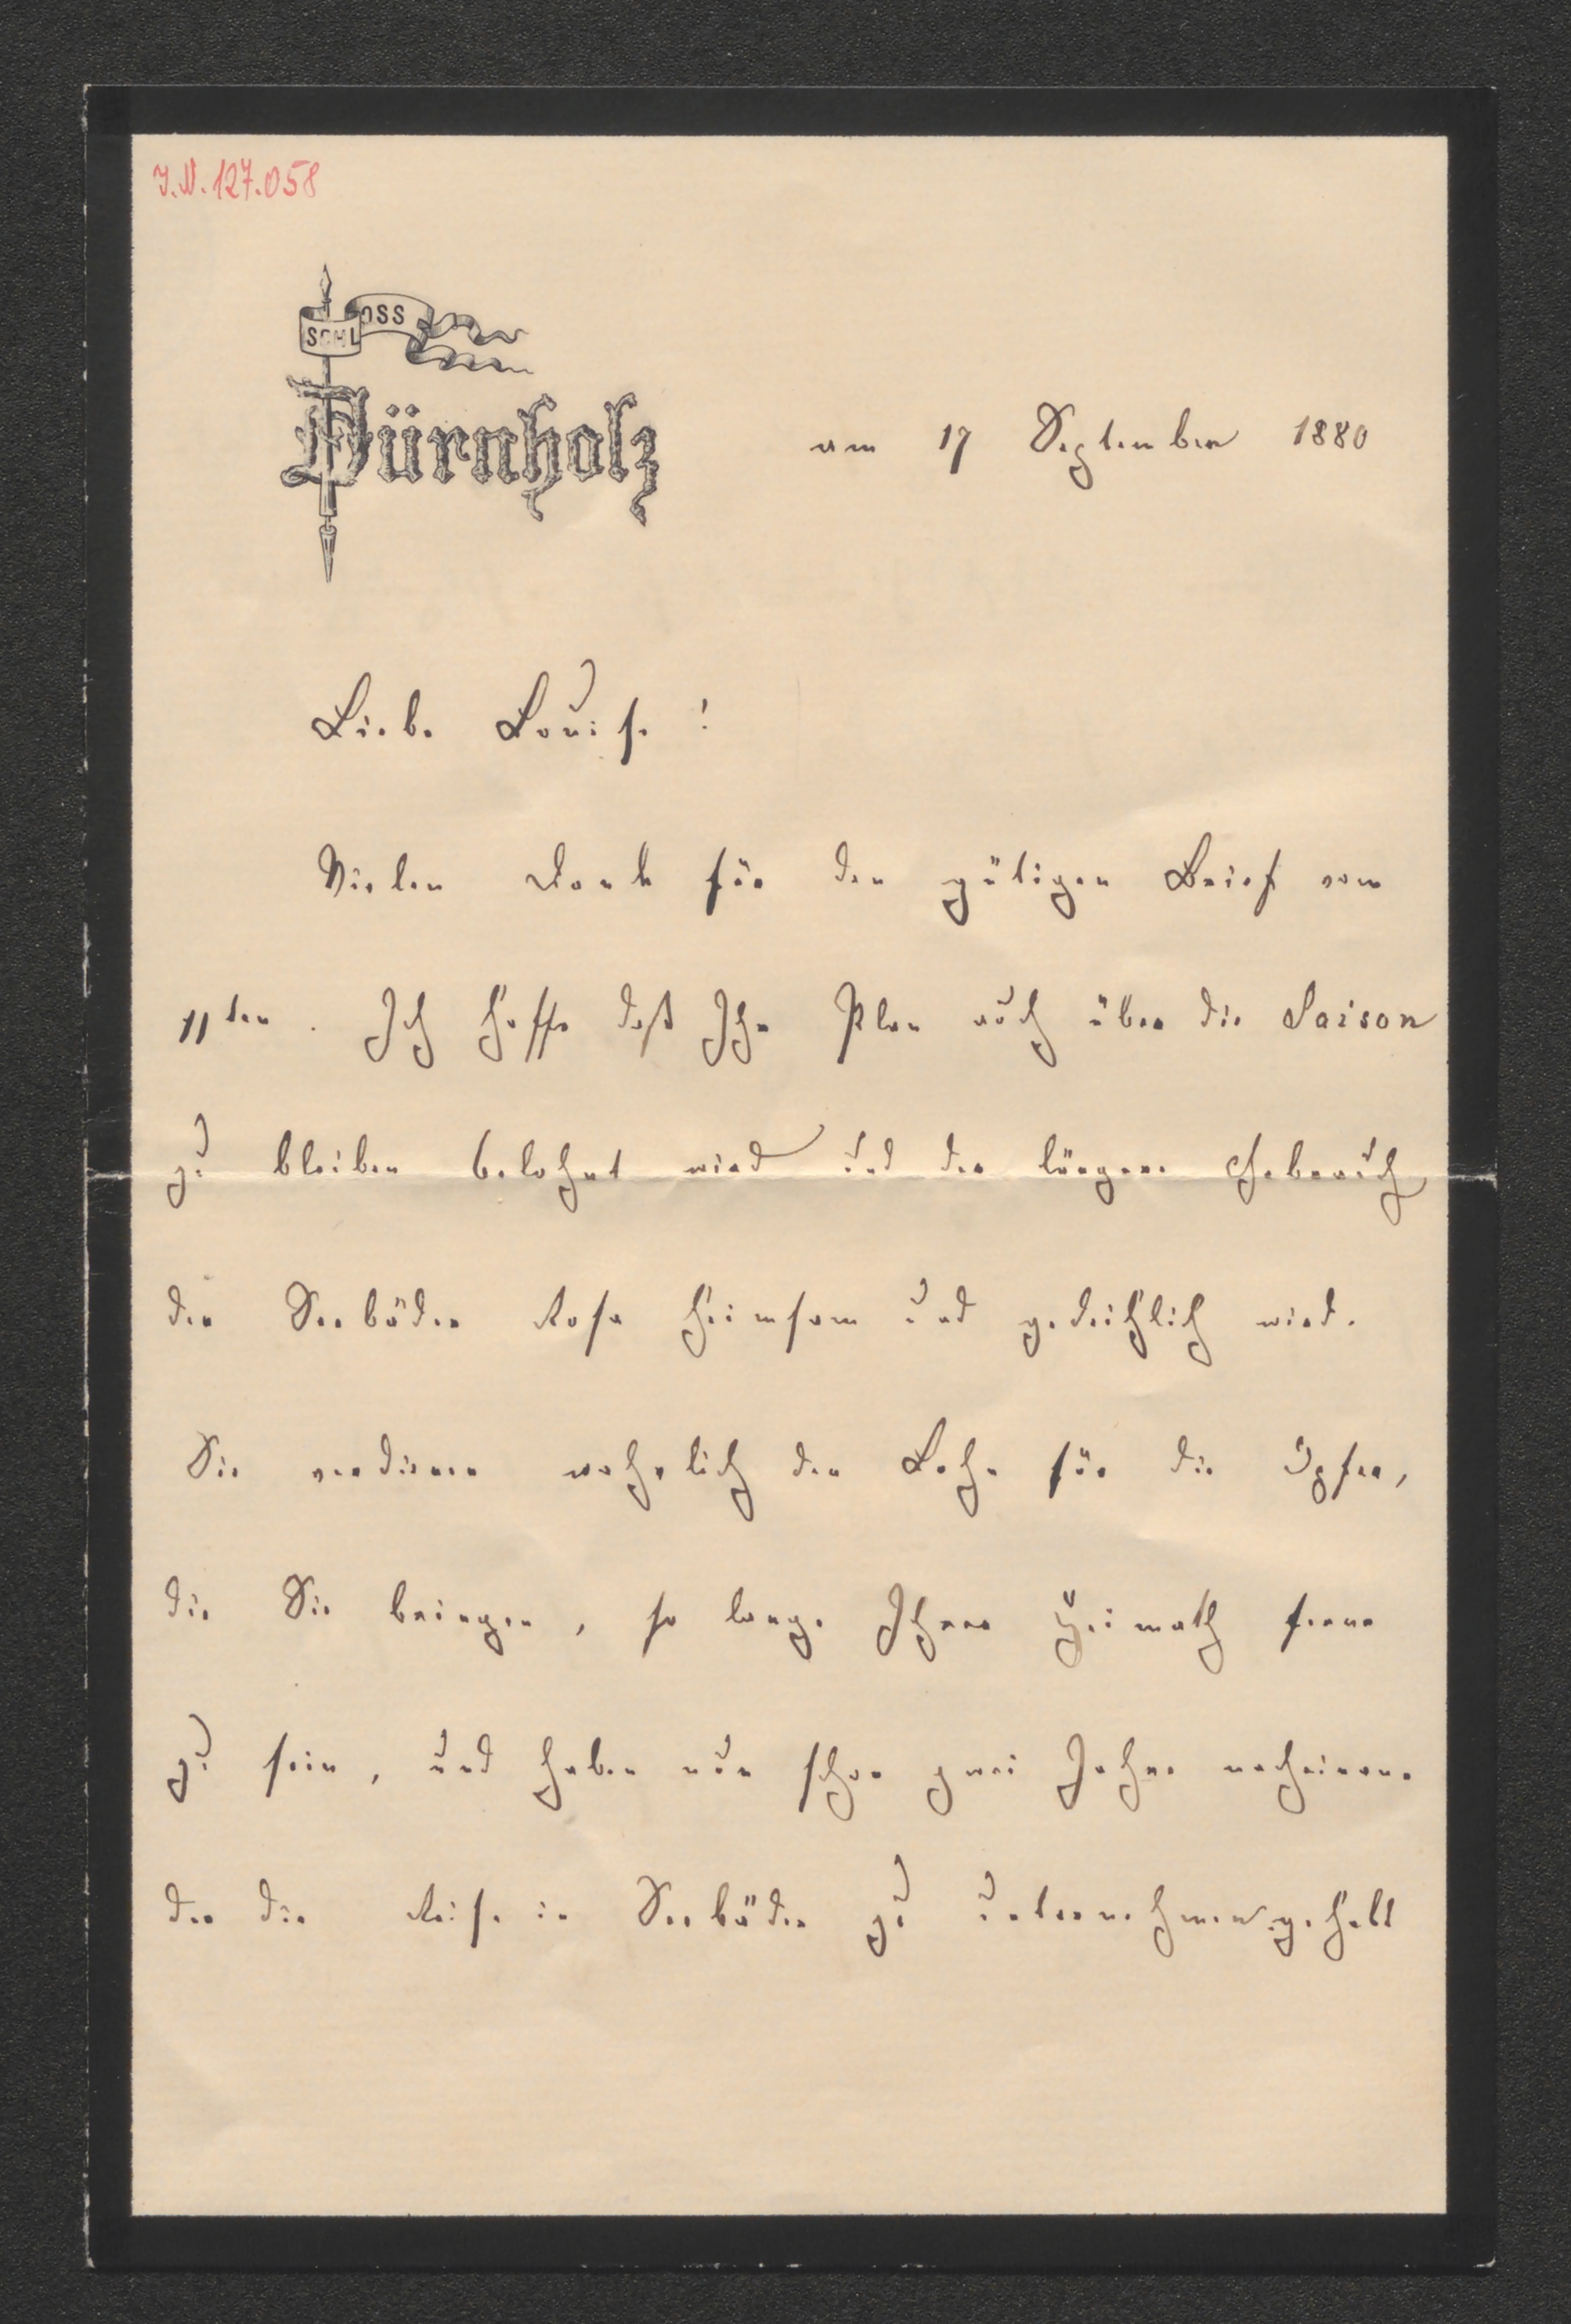 I.N. 127.058
SCHLOSS
Dürnholz
am 17 September 1880
Liebe Louise!
Vielen Dank für den gütigen Brief vom
11ten. Ich hoffe daß Ihr Plan auch über die Saison
zu bleiben belohnt wird und der längere Gebrauch
der Seebäder Rosa heilsam und gedeihlich wird.
Sie verdienen wahrlich den Lohn für die Opfer,
die Sie bringen, so lange Ihrer Heimath ferne
zu sein, und haben nun schon zwei Jahre nacheinan-
der die Reise in Seebäder zu unternehmen gehabt